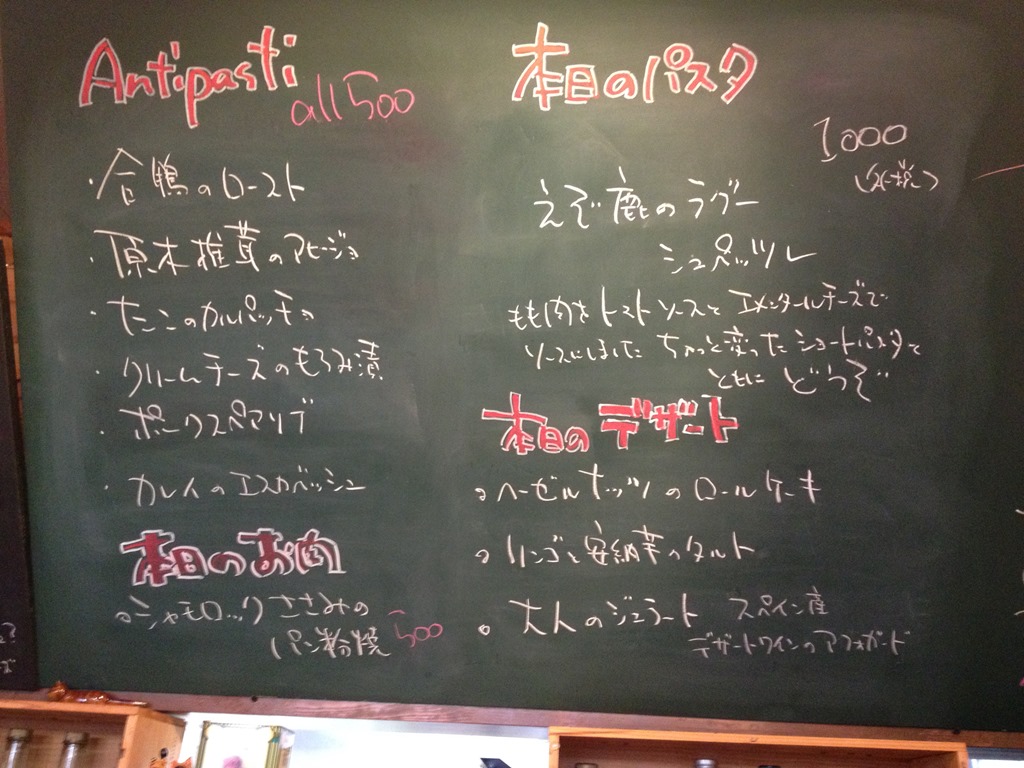 Antipasti
all 500
・合鴨のロースト
・原木椎茸のアヒージョ
・たこのカルパッチョ
・クリームチーズのもろみ漬
・ポークスペアリブ
・カレイのエスカベッシュ
本日のお肉
○シャモロックささみの
パン粉焼 500
本日のパスタ
1000
えぞ鹿のラグー
シュペッツレ
もも肉をトマトソースとエメンタールチーズで
ソースにしました ちょっと変ったショートパスタと
ともに どうぞ
本日のデザート
○ヘーゼルナッツのロールケーキ
○リンゴと安納芋のタルト
○大人のジェラート スペイン産
デザートワインのアフォガード